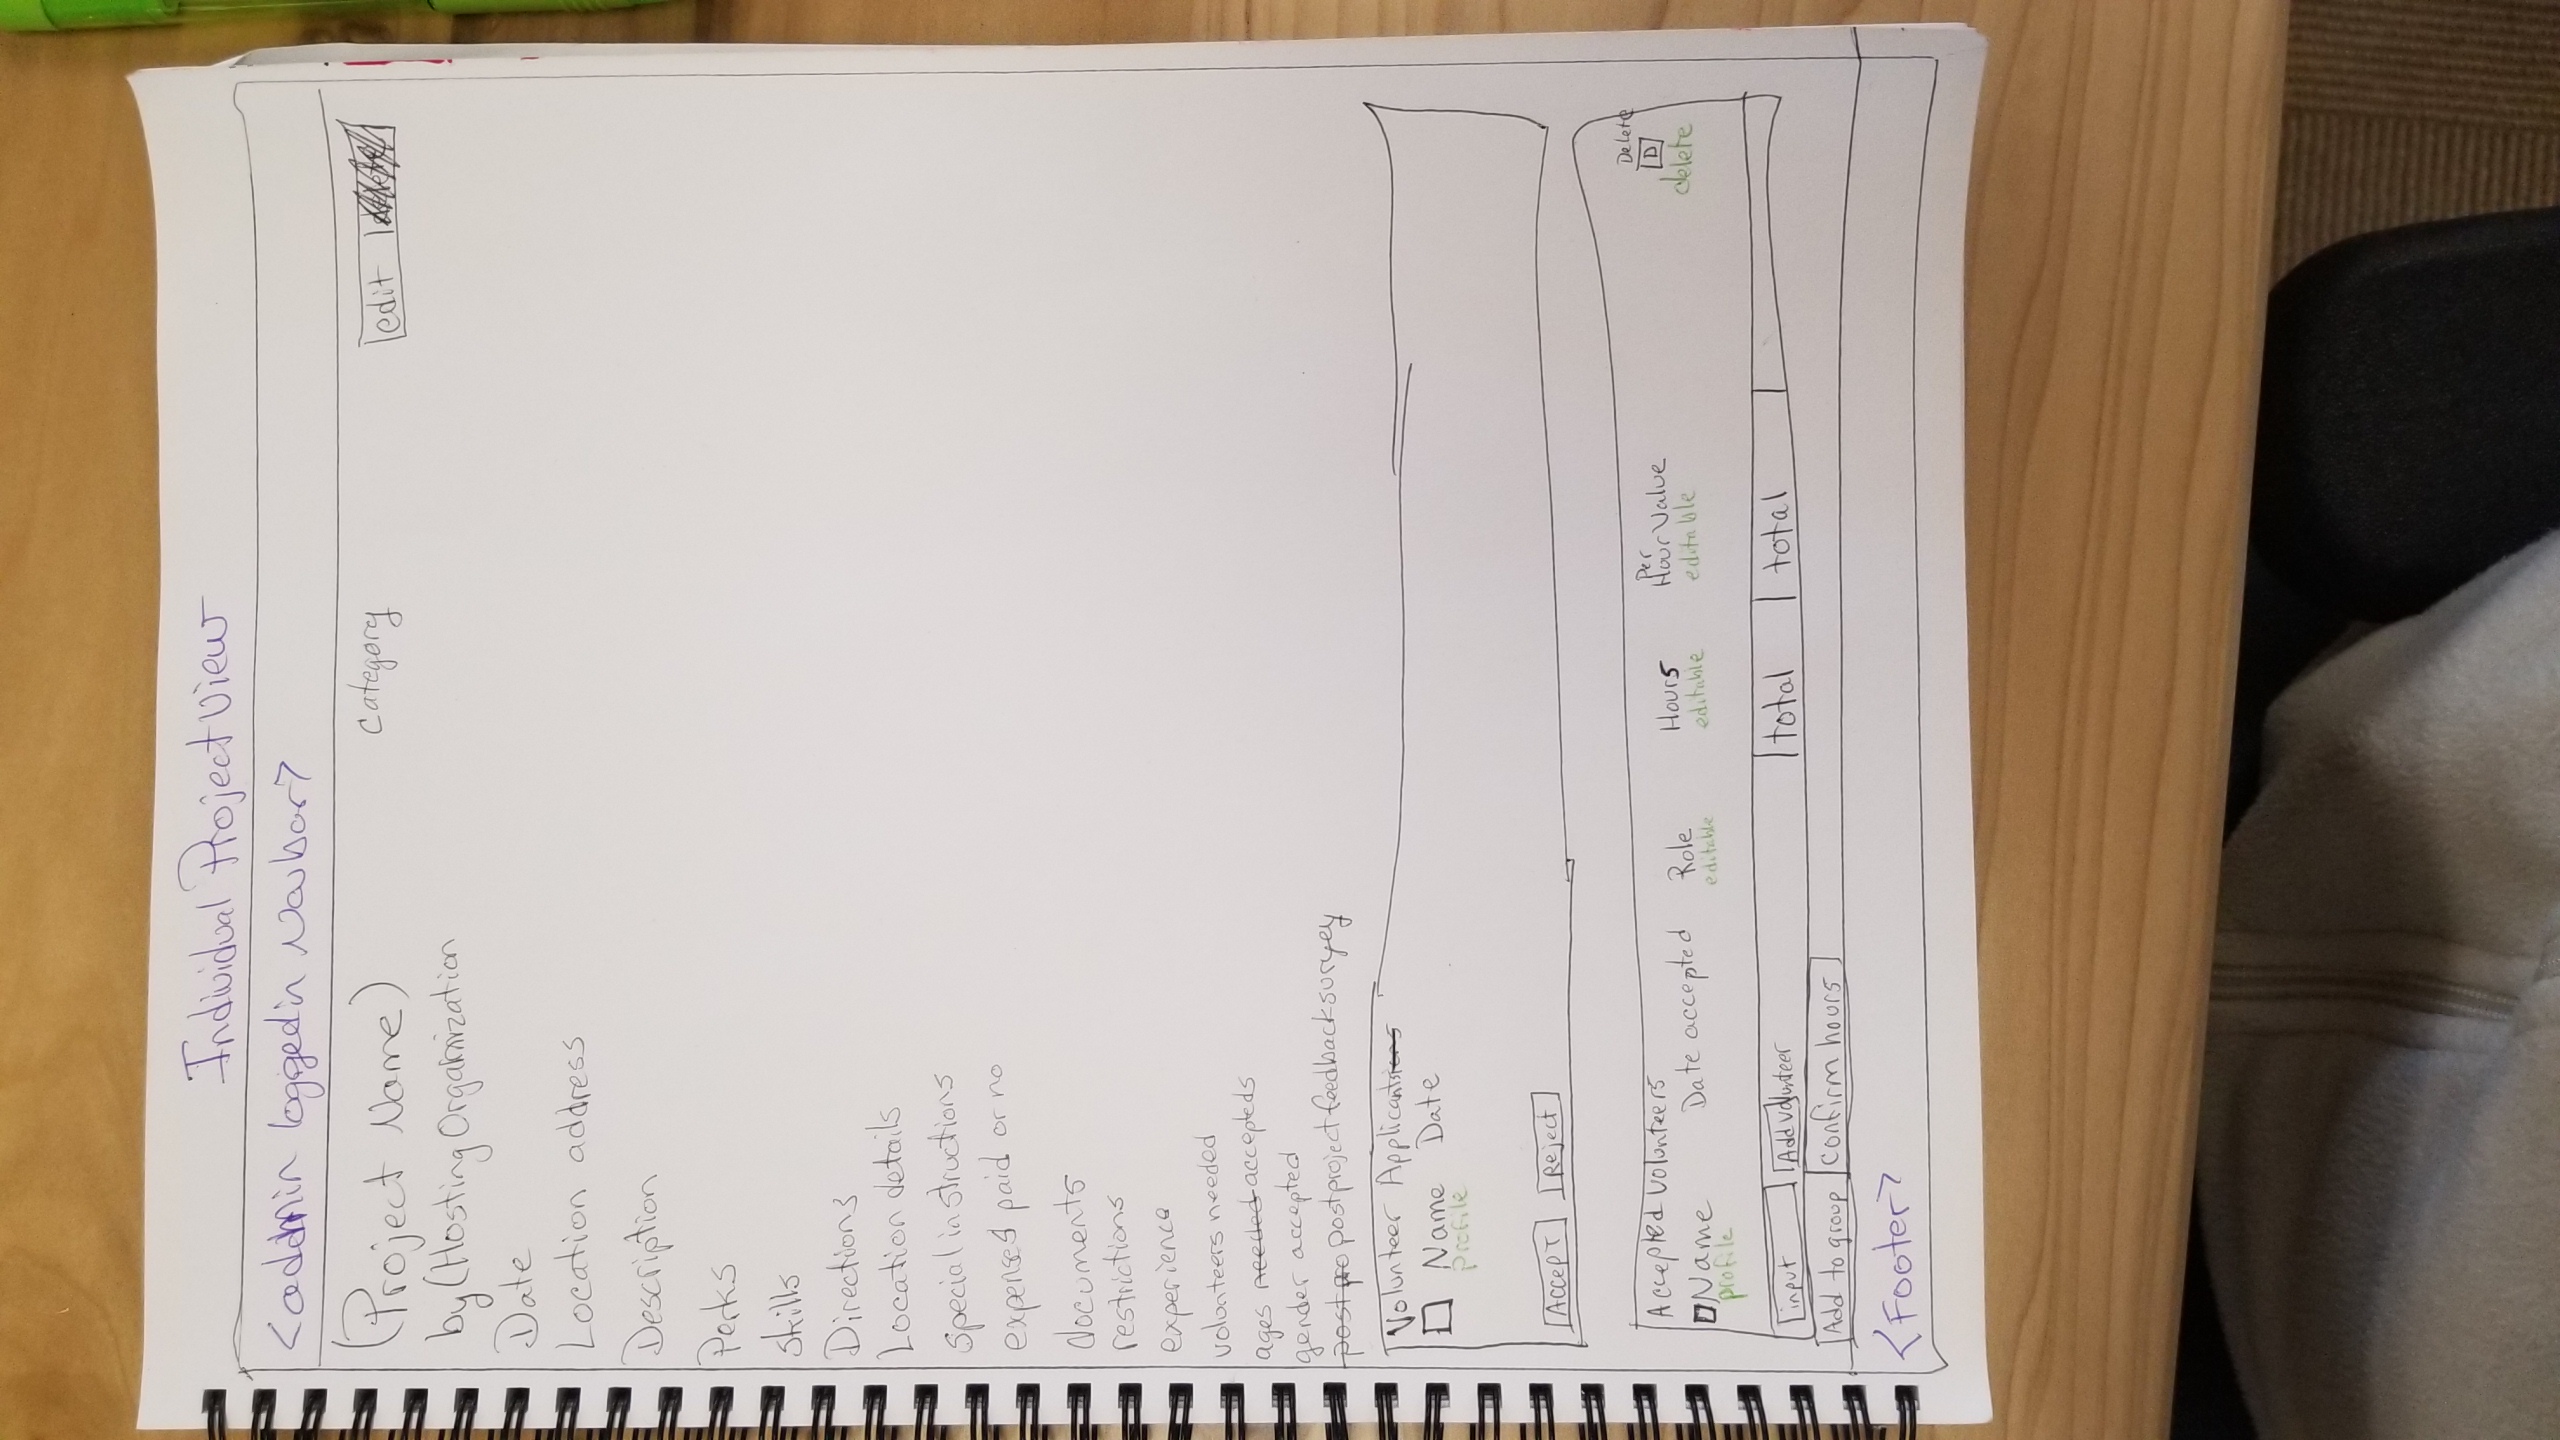 Individual Project View
<admin loggedin Navbar>
(Project Name) Category edit
by (Hosting Organization
Date
Location address
Description
Perks
skills
Directions
Location details
special instructions
expenses paid or no
documents
restrictions
experience
volunteers needed
ages needed accepteds
gender accepted
post pro postproject feedback survey
Volunteer Applicants
Name Date
profile
Accept Reject
Delete
Accepted volunteers Per D
Name Date accepted Role Hours Hour Value delete
profile editable editable editable
input Add volunteer total total
Add to group confirm hours
<Footer>